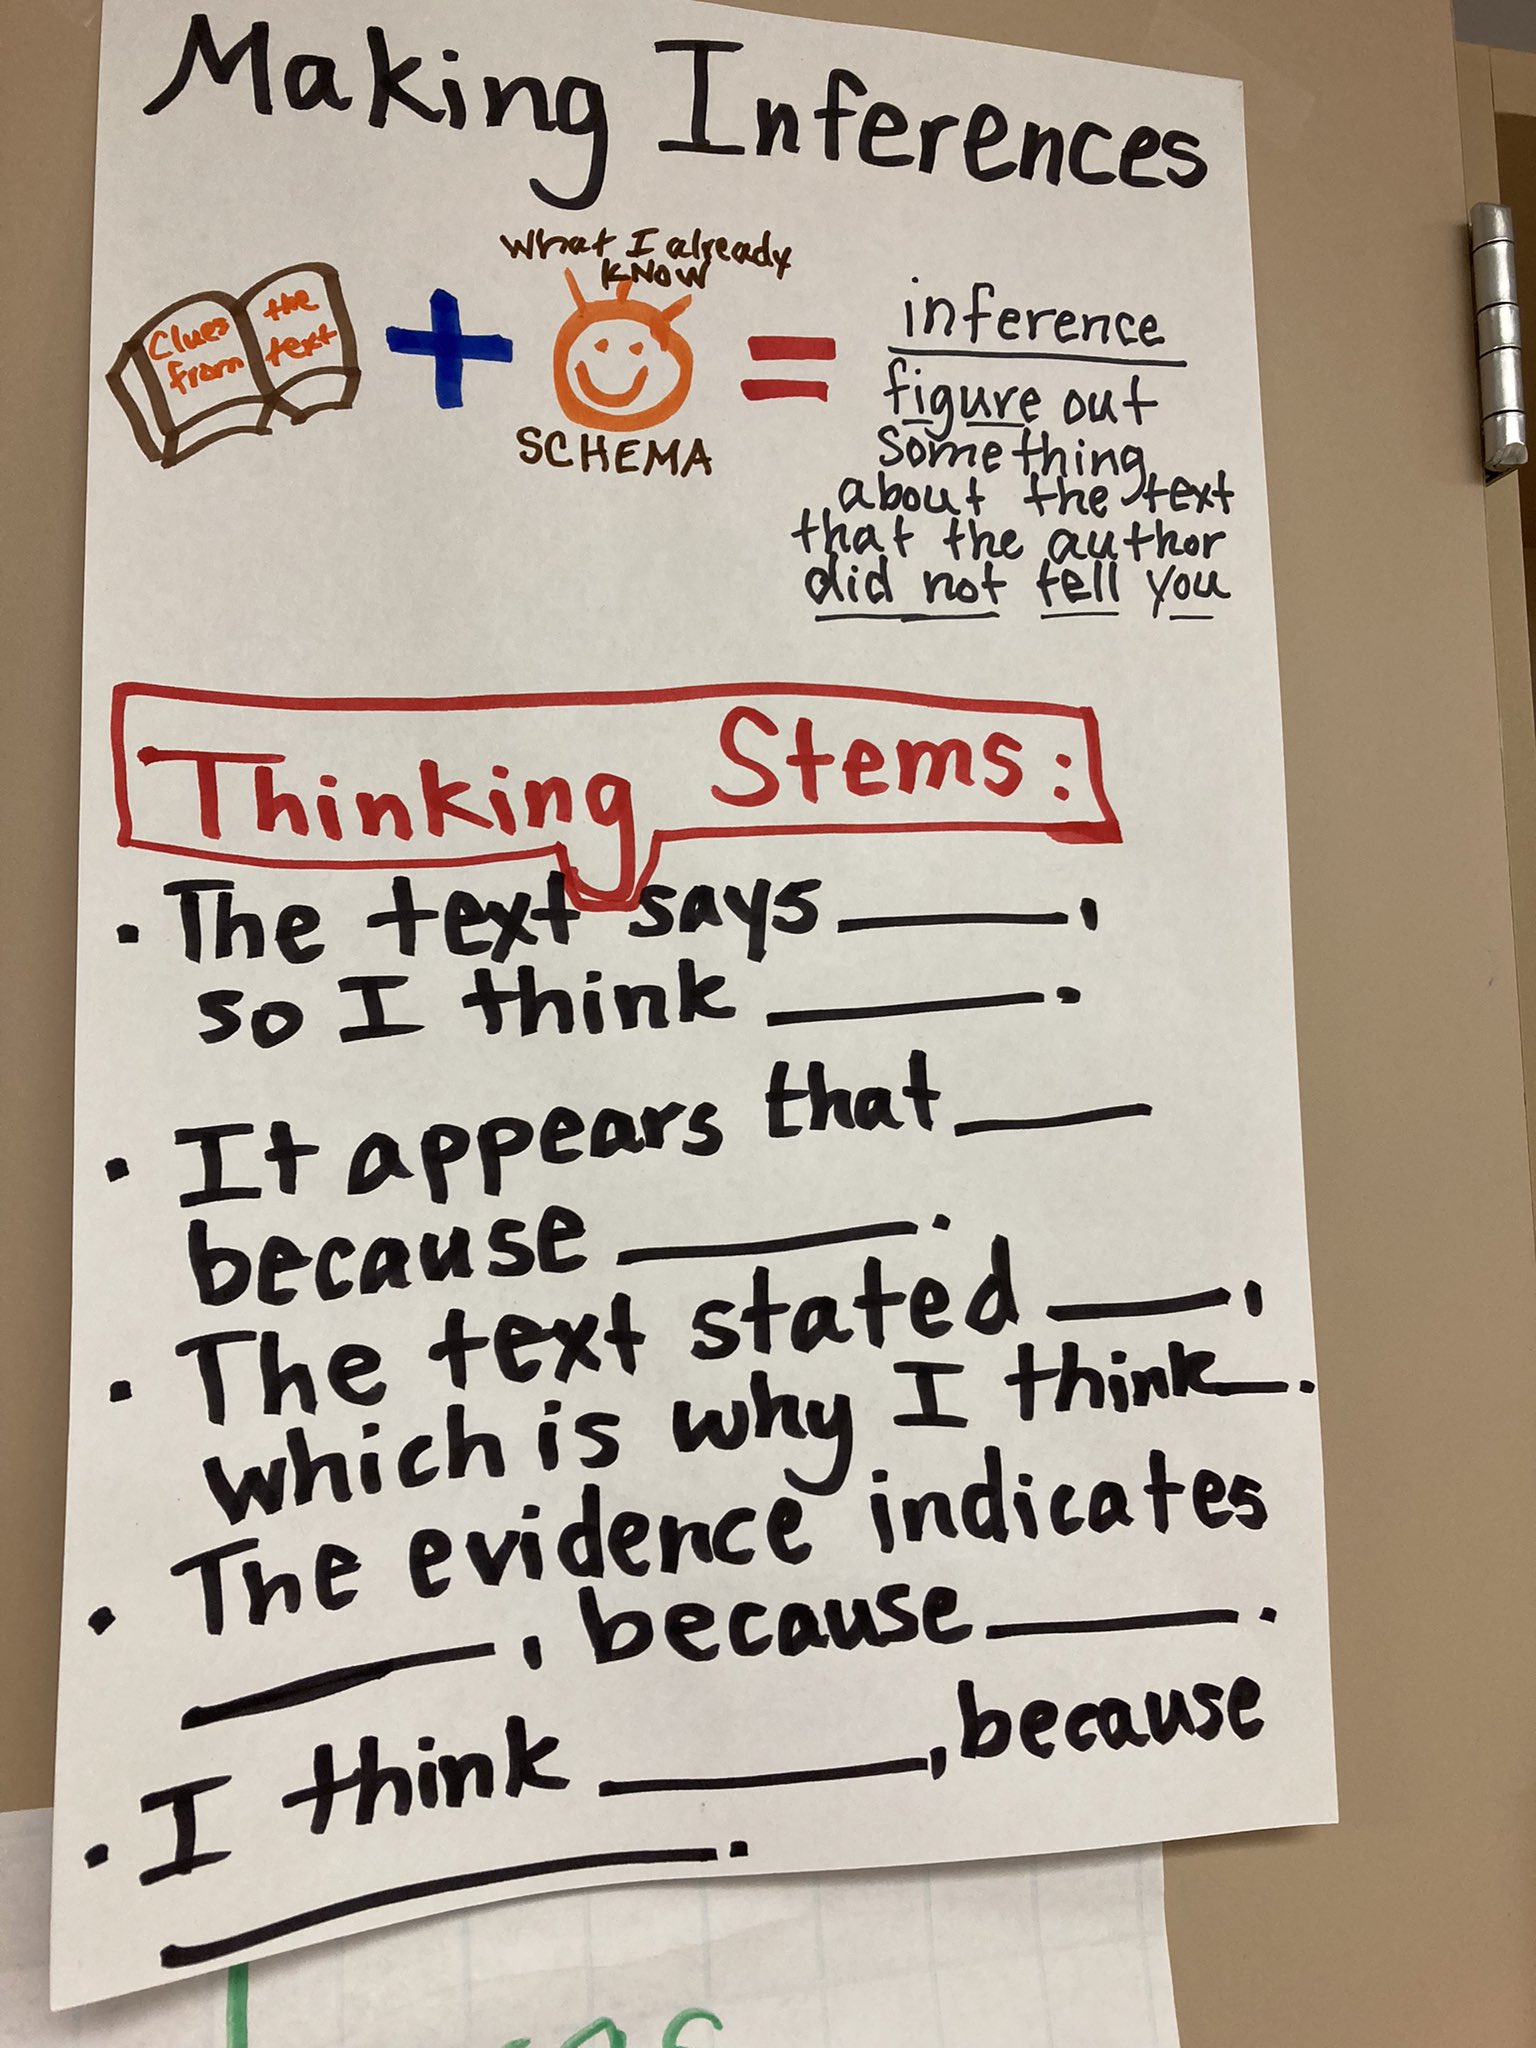 Making Inferences
What I already
KNOW
Clues from
the text
+
=
SCHEMA
inference
figure out
something
about the text
that the author
did not tell you
Thinking Stems:
• The text says ______,
so I think ______.
• It appears that ______
because ______.
• The text stated ______,
which is why I think ___.
• The evidence indicates
______, because ______.
• I think ______, because
______.